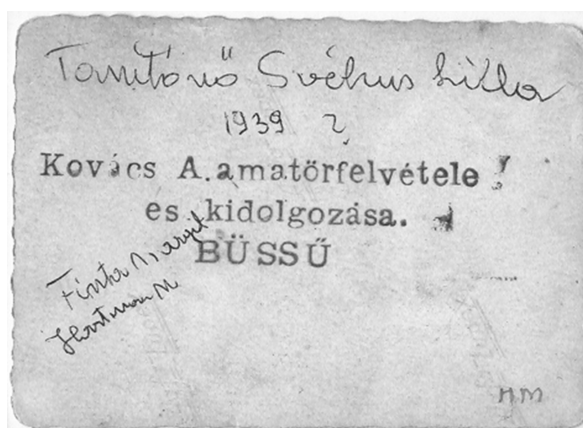 Tanítónő
1939 ?
Kovács A. amatörfelvétele !
es kidolgozása.
BÜSSŰ
Finta Margit
Hartman M
HM